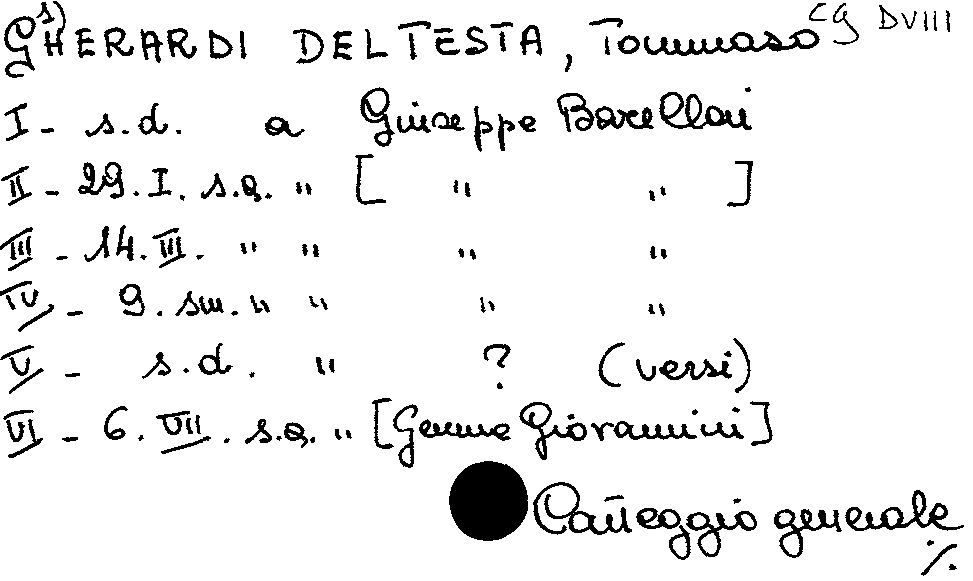 1) GHERARDI DEL TESTA, Tommaso CG DVIII
I - s.d. a Giuseppe Barellai
II - 29.I. s.a. " [ " " ]
III - 14.III. " " " "
IV - 9. sm. " " " "
V - s.d. " ? (versi)
VI - 6.VII. s.a. " [Gemma Giovannini]
Carteggio generale
./.